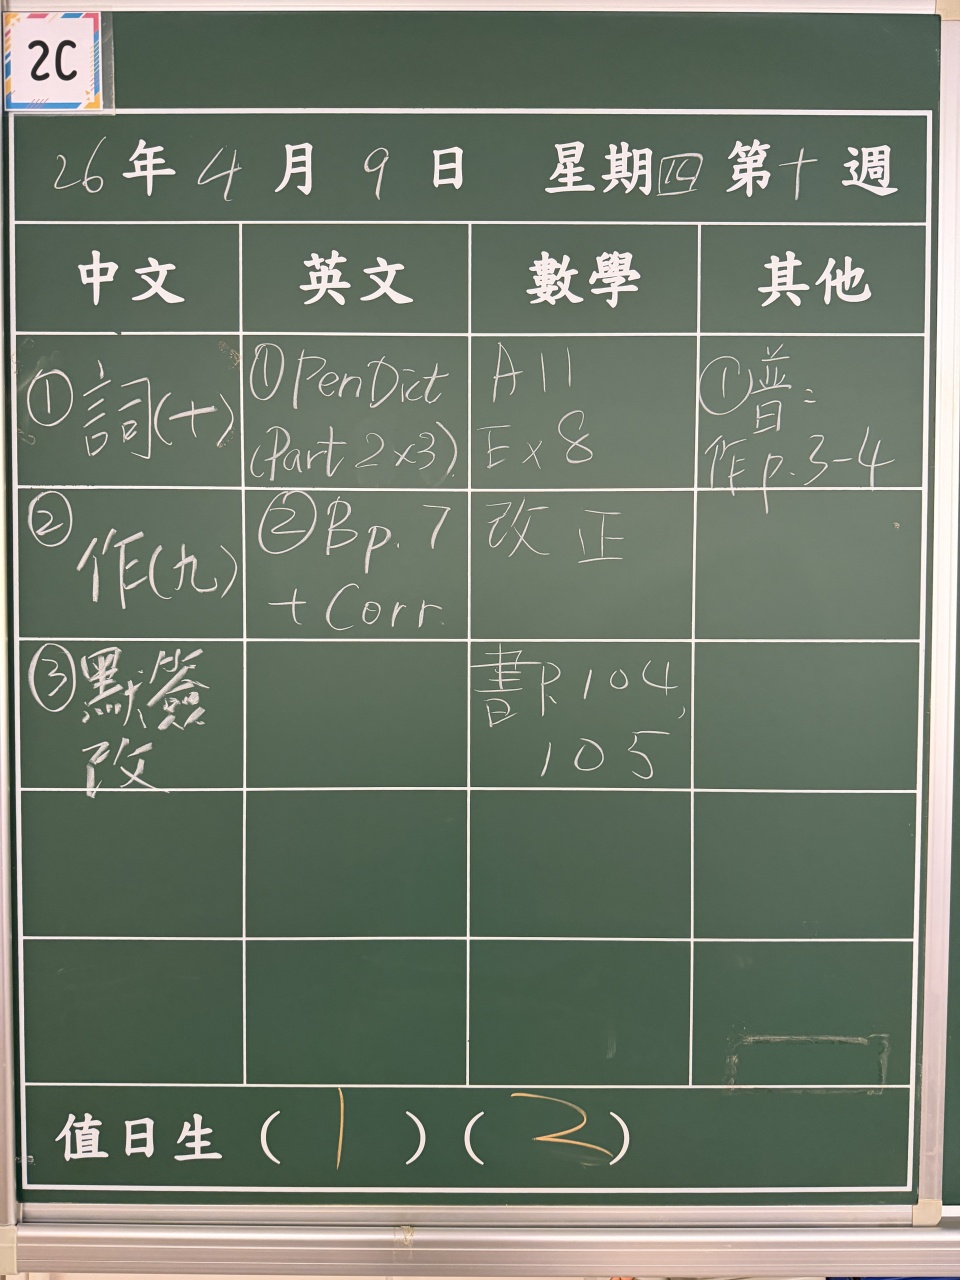 2C
26年4月9日 星期四 第十週
中文 英文 數學 其他
①詞(十)
①PenDict
(Part 2x3)
A11
Ex 8
①普:
作p.3-4
②
作(九)
②Bp.7
+Corr.
改正
③默簽
改
書P.104,
105
值日生(1)(2)